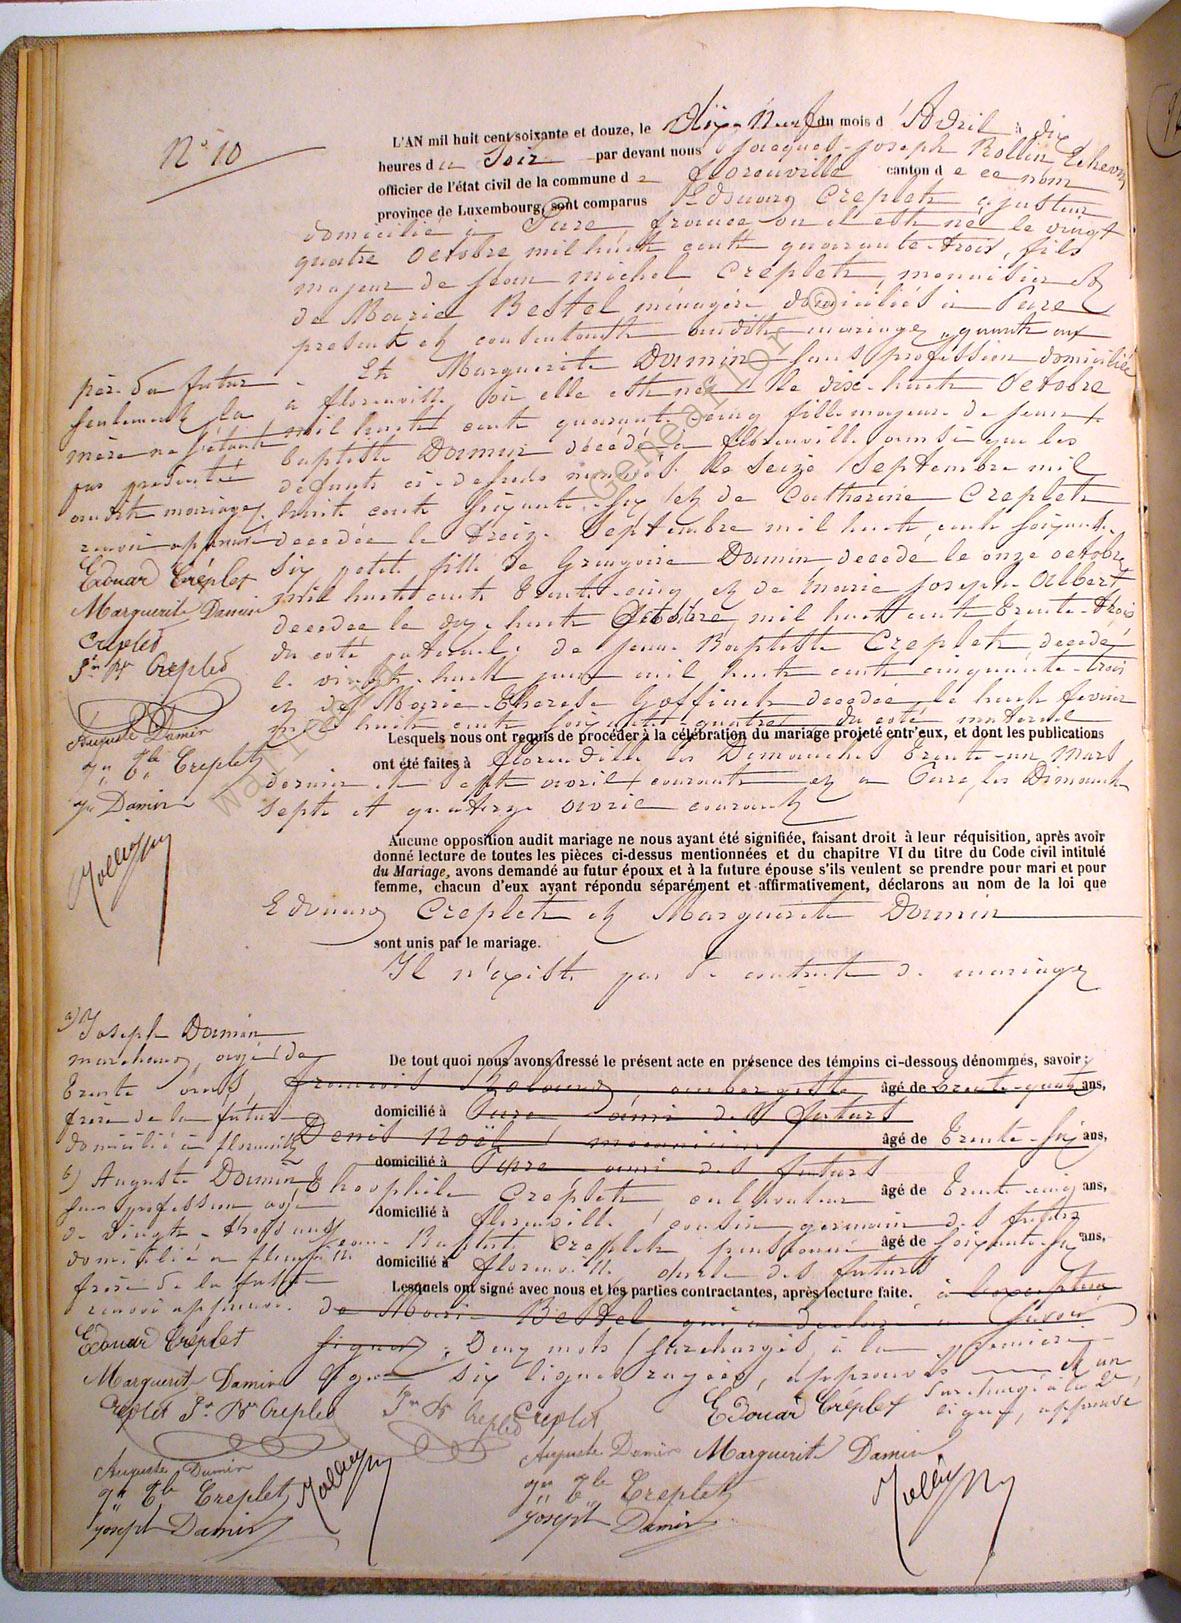 N° 10
L'AN mil huit cent soixante et douze, le dix-Neuf du mois d'Avril à dix
heures du Soir par devant nous Jacques-Joseph Rollin Echevin
officier de l'état civil de la commune de florenville canton de ce nom
province de Luxembourg, sont comparus Edouard Creplet ajusteur
domicilié à Pure, france où il est né le vingt
quatre Octobre mil huit cent quarante-trois, fils
majeur de Jean Michel Creplet, menuisier et
de Marie Bestel ménagère domiciliés à Pure
présent et consentant audit mariage, quant au
Et Marguerite Damin sans profession domiciliée
à florenville où elle est née le dix-huit Octobre
mil huit cent quarante cinq fille majeure de Jean
baptiste Damin décédé à florenville ainsi que les
défunts ci-dessus nommés le Seize Septembre mil
huit cent soixante-six et de Catherine Creplet
décédée le treize Septembre mil huit cent soixante
six petite fille de Grégoire Damin décédé le onze octobre
mil huit cent trente-cinq et de Marie Josephe Albert
décédée le dix-huit Octobre mil huit cent trente-trois
du coté paternel; de Jean Baptiste Creplet, décédé
le vingt-huit juin mil huit cent cinquante-trois
et de Marie-Therese Goffinet décédée le huit fevrier
mil huit cent soixante quatre du coté maternel
Lesquels nous ont requis de procéder à la célébration du mariage projeté entr'eux, et dont les publications
ont été faites à florenville les Dimanches trente-un Mars
dernier et sept avril courant et à Pure, les Dimanches
sept et quatorze avril courant
Aucune opposition audit mariage ne nous ayant été signifiée, faisant droit à leur réquisition, après avoir
donné lecture de toutes les pièces ci-dessus mentionnées et du chapitre VI du titre du Code civil intitulé
du Mariage, avons demandé au futur époux et à la future épouse s'ils veulent se prendre pour mari et pour
femme, chacun d'eux ayant répondu séparément et affirmativement, déclarons au nom de la loi que
Edouard Creplet et Marguerite Damin
sont unis par le mariage.
Il n'existe pas de contrat de mariage
De tout quoi nous avons dressé le présent acte en présence des témoins ci-dessous dénommés, savoir:
françois aubergiste âgé de trente-quatre ans,
domicilié à Pure ami des futurs
Denis Noël mecanicien âgé de trente-six ans,
domicilié à Pure ami des futurs
Théophile Créplet cultivateur âgé de trente-cinq ans,
domicilié à florenville cousin germain des futurs
Jean Baptiste Creplet pensionné âgé de soixante-six ans,
domicilié à florenville, oncle des futurs
Lesquels ont signé avec nous et les parties contractantes, après lecture faite. à l'exception
de Marie Bestel qui a déclaré ne savoir
signer; Deux mots surchargés à la première
ligne six lignes rayées, approuvés et un
surchargé à la 2e
ligne, approuvé
père du futur
seulement la
mère ne s'étant
pas présentée
audit mariage
renvoi approuvé
Edouar Créplet
Marguerit Damin
Creplet
Jn Bte Creplet
Auguste Damin
Jn Tle Creplet
Jph Damin
Rollin
a) Joseph Damin
marchand, âgé de
trente ans,
frère de la future
domicilié à florenville
b) Auguste Damin
sans profession âgé
de vingt-trois ans
domicilié à florenville
frère de la future
renvoi approuvé.
Edouar Créplet
Marguerit Damin
Creplet Jn Bte Creplet
Auguste Damin
Jn Tle Creplet
Joseph Damin
Rollin
Jn Bte Creplet Creplet
Edouar Créplet
Auguste Damin Marguerit Damin
Jn Tle Creplet
Joseph Damin
Rollin